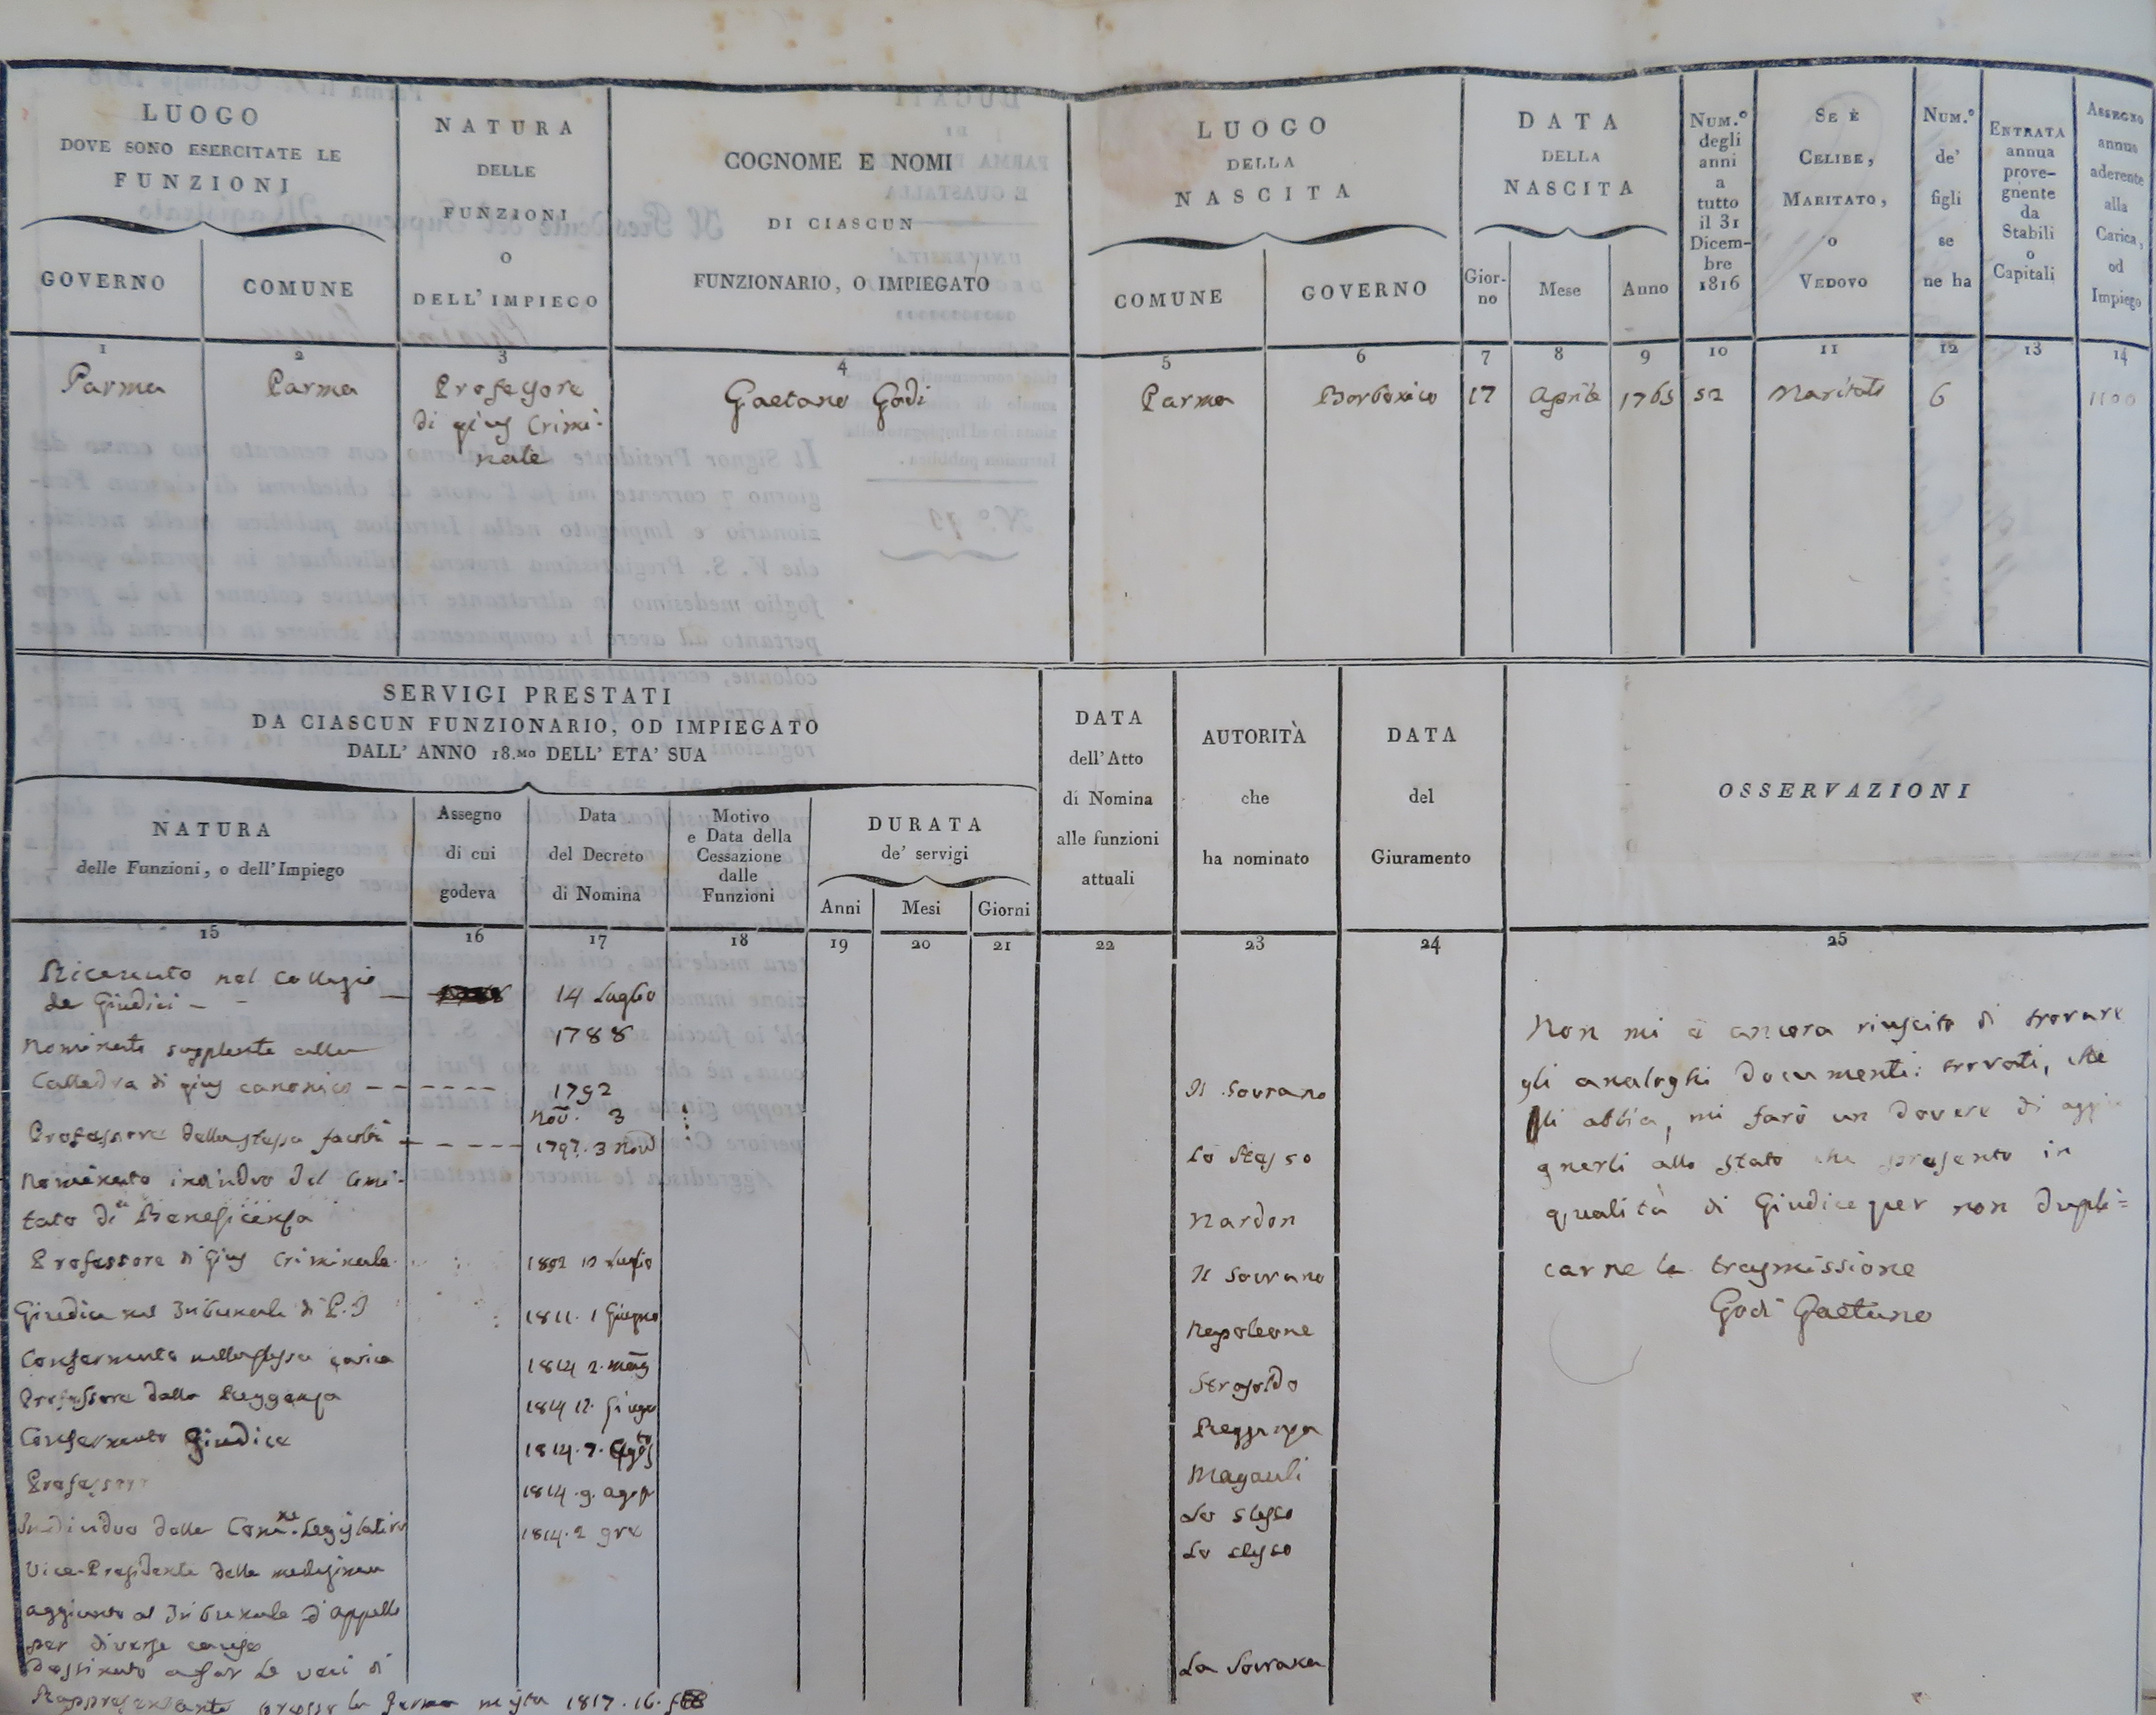 LUOGO
DOVE SONO ESERCITATE LE
FUNZIONI
GOVERNO
COMUNE
NATURA
DELLE
FUNZIONI
O
DELL' IMPIEGO
COGNOME E NOMI
DI CIASCUN
FUNZIONARIO, O IMPIEGATO
LUOGO
DELLA
NASCITA
COMUNE
GOVERNO
DATA
DELLA
NASCITA
Gior-
no
Mese
Anno
NUM.º
degli
anni
a
tutto
il 31
Dicem-
bre
1816
SE È
CELIBE,
MARITATO,
o
VEDOVO
NUM.º
de'
figli
se
ne ha
ENTRATA
annua
prove-
gnente
da
Stabili
o
Capitali
ASSEGNO
annuo
aderente
alla
Carica,
od
Impiego
1 2 3 4 5 6 7 8 9 10 11 12 13 14
Parma
Parma
Professore
di gius Crimi-
nale
Gaetano Godi
Parma
Borbonico
17
Aprile
1765
52
Maritato
6
1100
SERVIGI PRESTATI
DA CIASCUN FUNZIONARIO, OD IMPIEGATO
DALL' ANNO 18.MO DELL' ETA' SUA
NATURA
delle Funzioni, o dell'Impiego
Assegno
di cui
godeva
Data
del Decreto
di Nomina
Motivo
e Data della
Cessazione
dalle
Funzioni
DURATA
de' servigi
Anni
Mesi
Giorni
DATA
dell'Atto
di Nomina
alle funzioni
attuali
AUTORITÀ
che
ha nominato
DATA
del
Giuramento
OSSERVAZIONI
15 16 17 18 19 20 21 22 23 24 25
Ricevuto nel Collegio
de Giudici
14 Luglio
1788
Nominato supplente alla
Cattedra di gius canonico
1792
Nov. 3
Il Sovrano
Professore della stessa facoltà
1797. 3 Nov
Lo Stesso
Nominato individuo del Comi-
tato di Beneficenza
Nardon
Professore di Gius Criminale
1802 10 Luglio
Il Sovrano
Giudice nel Tribunale di P. I
1811. 1 Giugno
Napoleone
Confermato nella stessa carica
1814 2. mag
Strasoldo
Professore dalla Reggenza
1814 12. Giugn
Reggenza
Confermato Giudice
1814. 9. Agos
Magauli
Professore
1814. 9. agos
Lo stesso
Individuo della Comm.ne Legislativa
1814. 2
Lo stesso
Vice-Presidente della medesima
aggiunto al Tribunale d'appello
per diverse cause
Destinato a far le veci di
La Sovrana
Rappresentante presso la 1817. 16.
Non mi è ancora riuscito di trovare
gli analoghi documenti: trovati, che
gli abbia, mi farò un dovere di aggiu
gnerli allo stato che presento in
qualità di Giudice per non dupli=
carne la trasmissione
Godi Gaetano